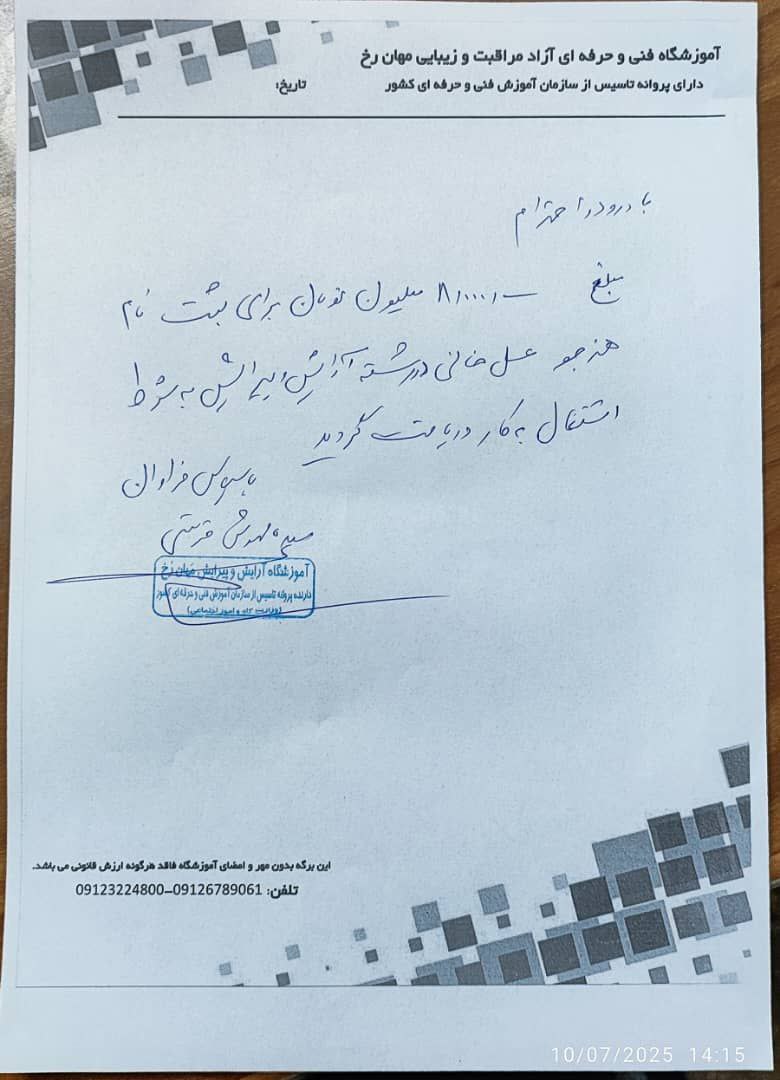 آموزشگاه فنی و حرفه ای آزاد مراقبت و زیبایی مهان رخ
دارای پروانه تاسیس از سازمان آموزش فنی و حرفه ای کشور
تاریخ:
با درود و احترام
مبلغ ۸/۰۰۰/۰۰۰ میلیون تومان برای ثبت نام
هنرجو عسل خانی در رشته آرایش و پیرایش به شرط
اشتغال به کار دریافت گردید
با سپاس فراوان
مهدوش قریشی
آموزشگاه آرایش و پیرایش مهان رخ
دارنده پروانه تاسیس از سازمان آموزش فنی و حرفه ای کشور
(وزارت کار و امور اجتماعی)
این برگه بدون مهر و امضای آموزشگاه فاقد هرگونه ارزش قانونی می باشد.
تلفن: 09126789061-09123224800
10/07/2025 14:15